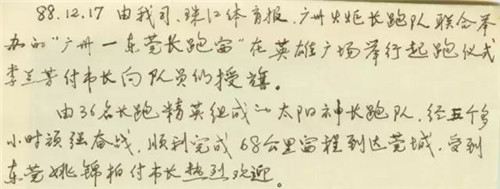 88.12.17 由我司、珠江体育报、广州火炬长跑队联合举
办的“广州一东莞长跑富”在英雄广场举行起跑仪式
李兰芳付市长向队员们授旗。
由36名长跑精英组成的太阳神长跑队,经五个多
小时顽强奋战,顺利完成68公里富程到达莞城,受到
东莞姚锦柏付市长热烈欢迎。